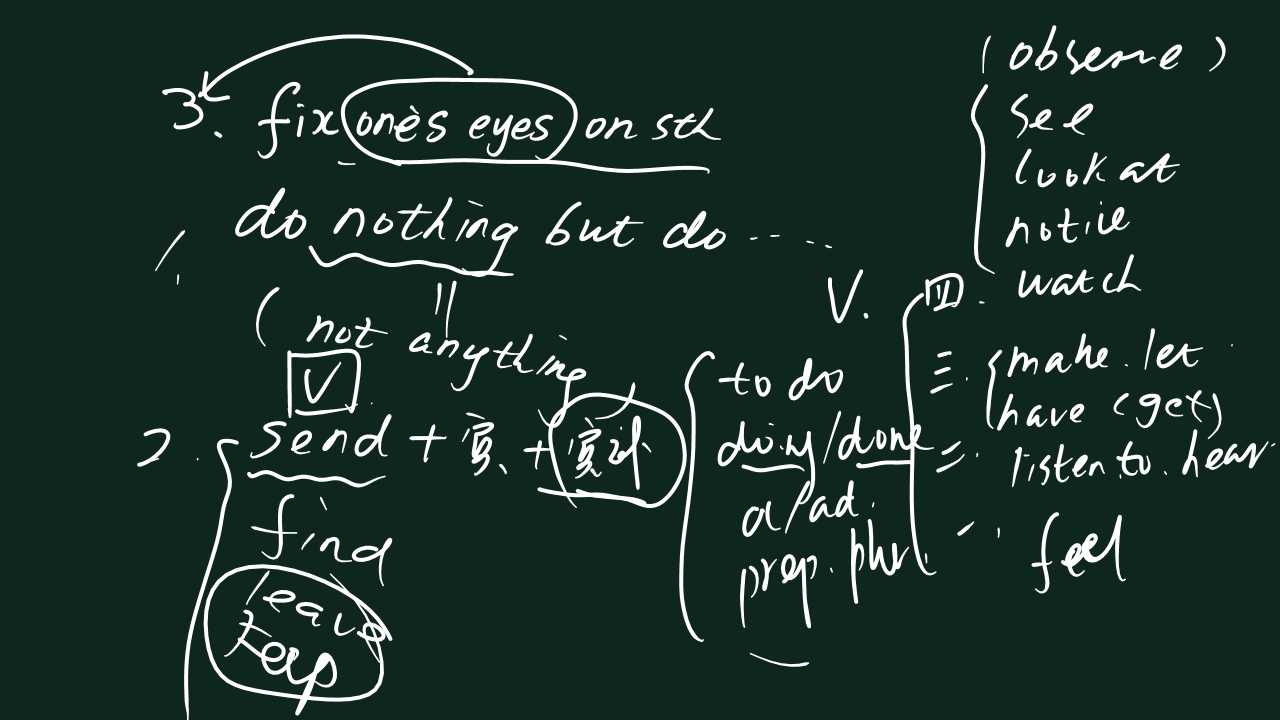 3. fix one's eyes on sth
do nothing but do .....
1.
( not anything
V
2. send + 宾. + 宾补
find
leave
keep
to do
doing/done
a/ad.
prep. phr.
V.
(observe)
see
look at
notice
四. watch
三. make. let
have (get)
二. listen to. hear
一. feel